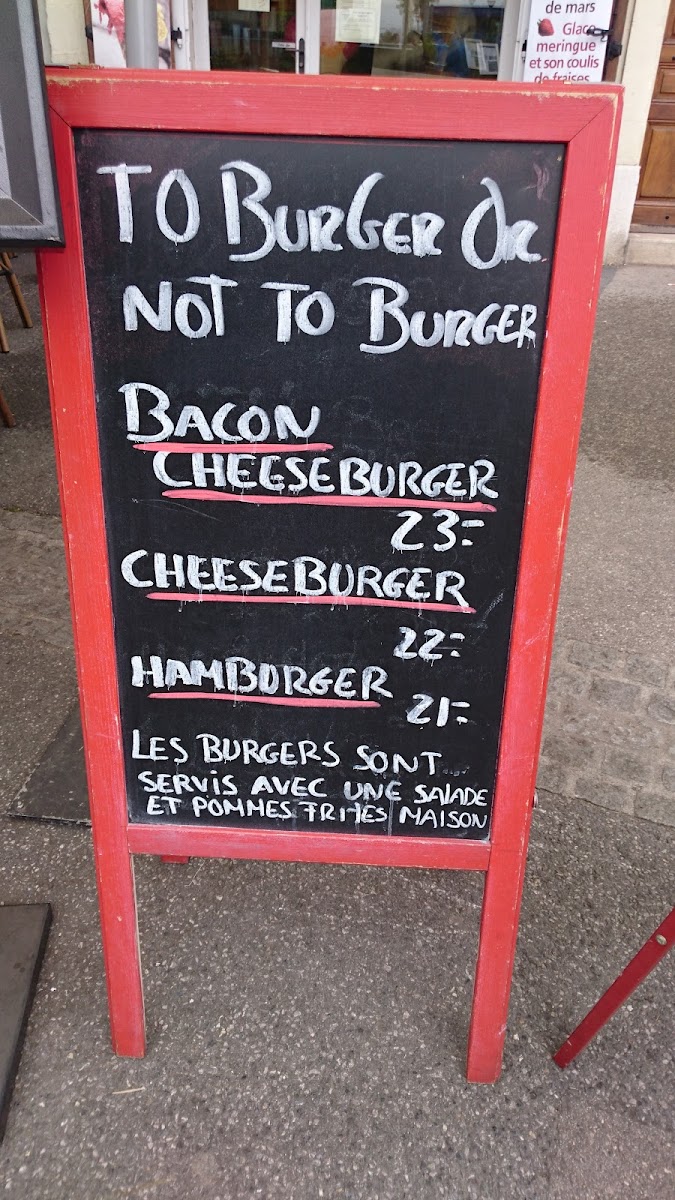 de mars
Glace
meringue
et son coulis
de fraises
TO BURGER OR
NOT TO BURGER
BACON
CHEESEBURGER
23=
CHEESEBURGER
22=
HAMBURGER
21=
LES BURGERS SONT
SERVIS AVEC UNE SALADE
ET POMMES FRITES MAISON